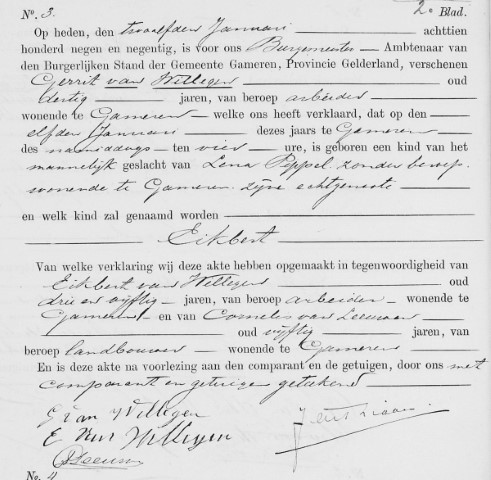 No. 3. 2e Blad.
Op heden, den twaalfden Januari achttien
honderd negen en negentig, is voor ons Burgemeester Ambtenaar van
den Burgerlijken Stand der Gemeente Gameren, Provincie Gelderland, verschenen
Gerrit van Willigen oud
dertig jaren, van beroep arbeider
wonende te Gameren welke ons heeft verklaard, dat op den
elfden Januari dezes jaars te Gameren
des namiddags ten vier ure, is geboren een kind van het
mannelijk geslacht van Lena Peppel zonder beroep
wonende te Gameren zijne echtgenoote
en welk kind zal genaamd worden
Eikbert
Van welke verklaring wij deze akte hebben opgemaakt in tegenwoordigheid van
Eikbert van Willigen oud
drie en vijftig jaren, van beroep arbeider wonende te
Gameren en van Cornelis van Leeuwen
oud vijftig jaren, van
beroep landbouwer wonende te Gameren
En is deze akte na voorlezing aan den comparant en de getuigen, door ons met
comparant en getuigen geteekend
G van Willigen
E van Willigen
No. 4